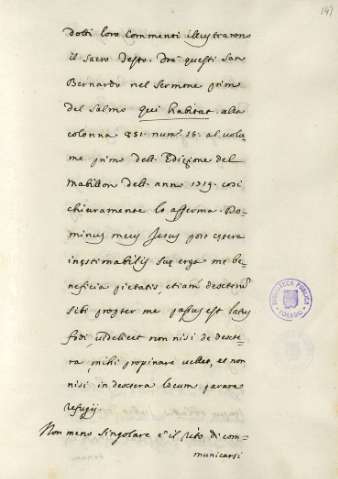 141
dotti loro Commenti illustrarono
il Sacro Testo. Tra questi San
Bernardo nel Sermone primo
del Salmo qui habitat alla
colonna 831. num. 15. al volu
me primo dell. Edizione del
Mabillon dell. anno 1719. così
chiaramente lo afferma. Do-
minus meus Jesus post cetera
inestimabilis suae erga me be-
neficia pietatis, etiam dexterum
sibi propter me passus est latus
fodi, videlicet non nisi de dexte-
ra mihi propinare vellet, et non
nisi in dextera locum parare
refugij
Non meno singolare è il rito di com-
municarsi
BIBLIOTECA PUBLICA
TOLEDO